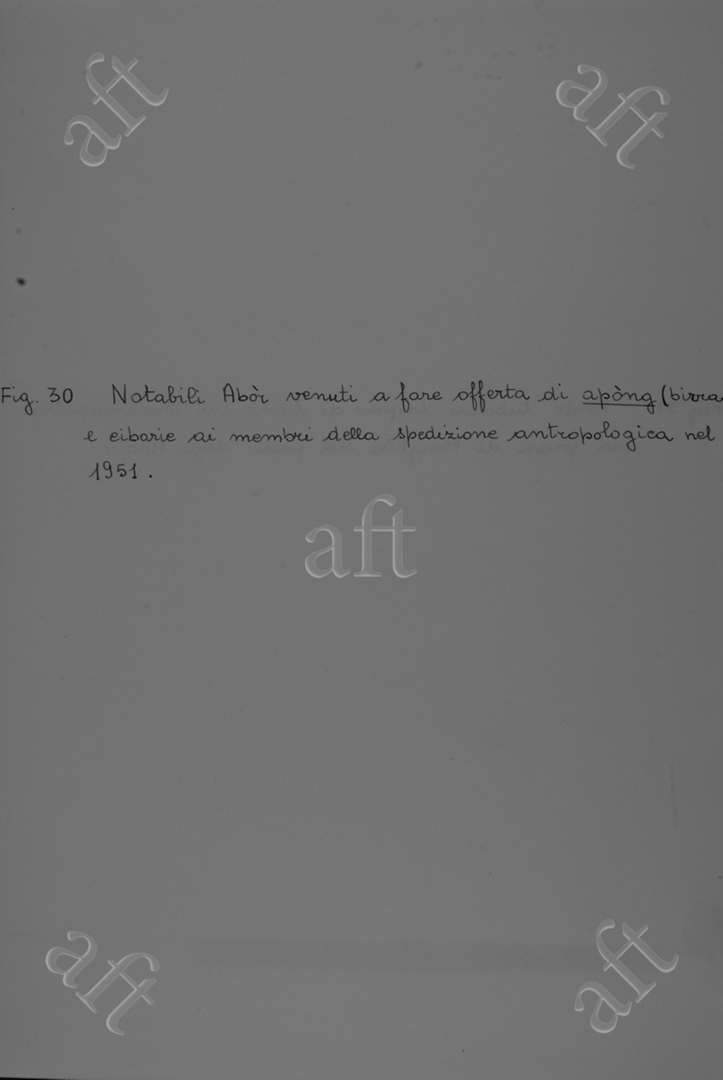 aft
aft
Fig. 30 Notabili Abòr venuti a fare offerta di apòng (birra
e cibarie ai membri della spedizione antropologica nel
1951.
aft
aft
aft